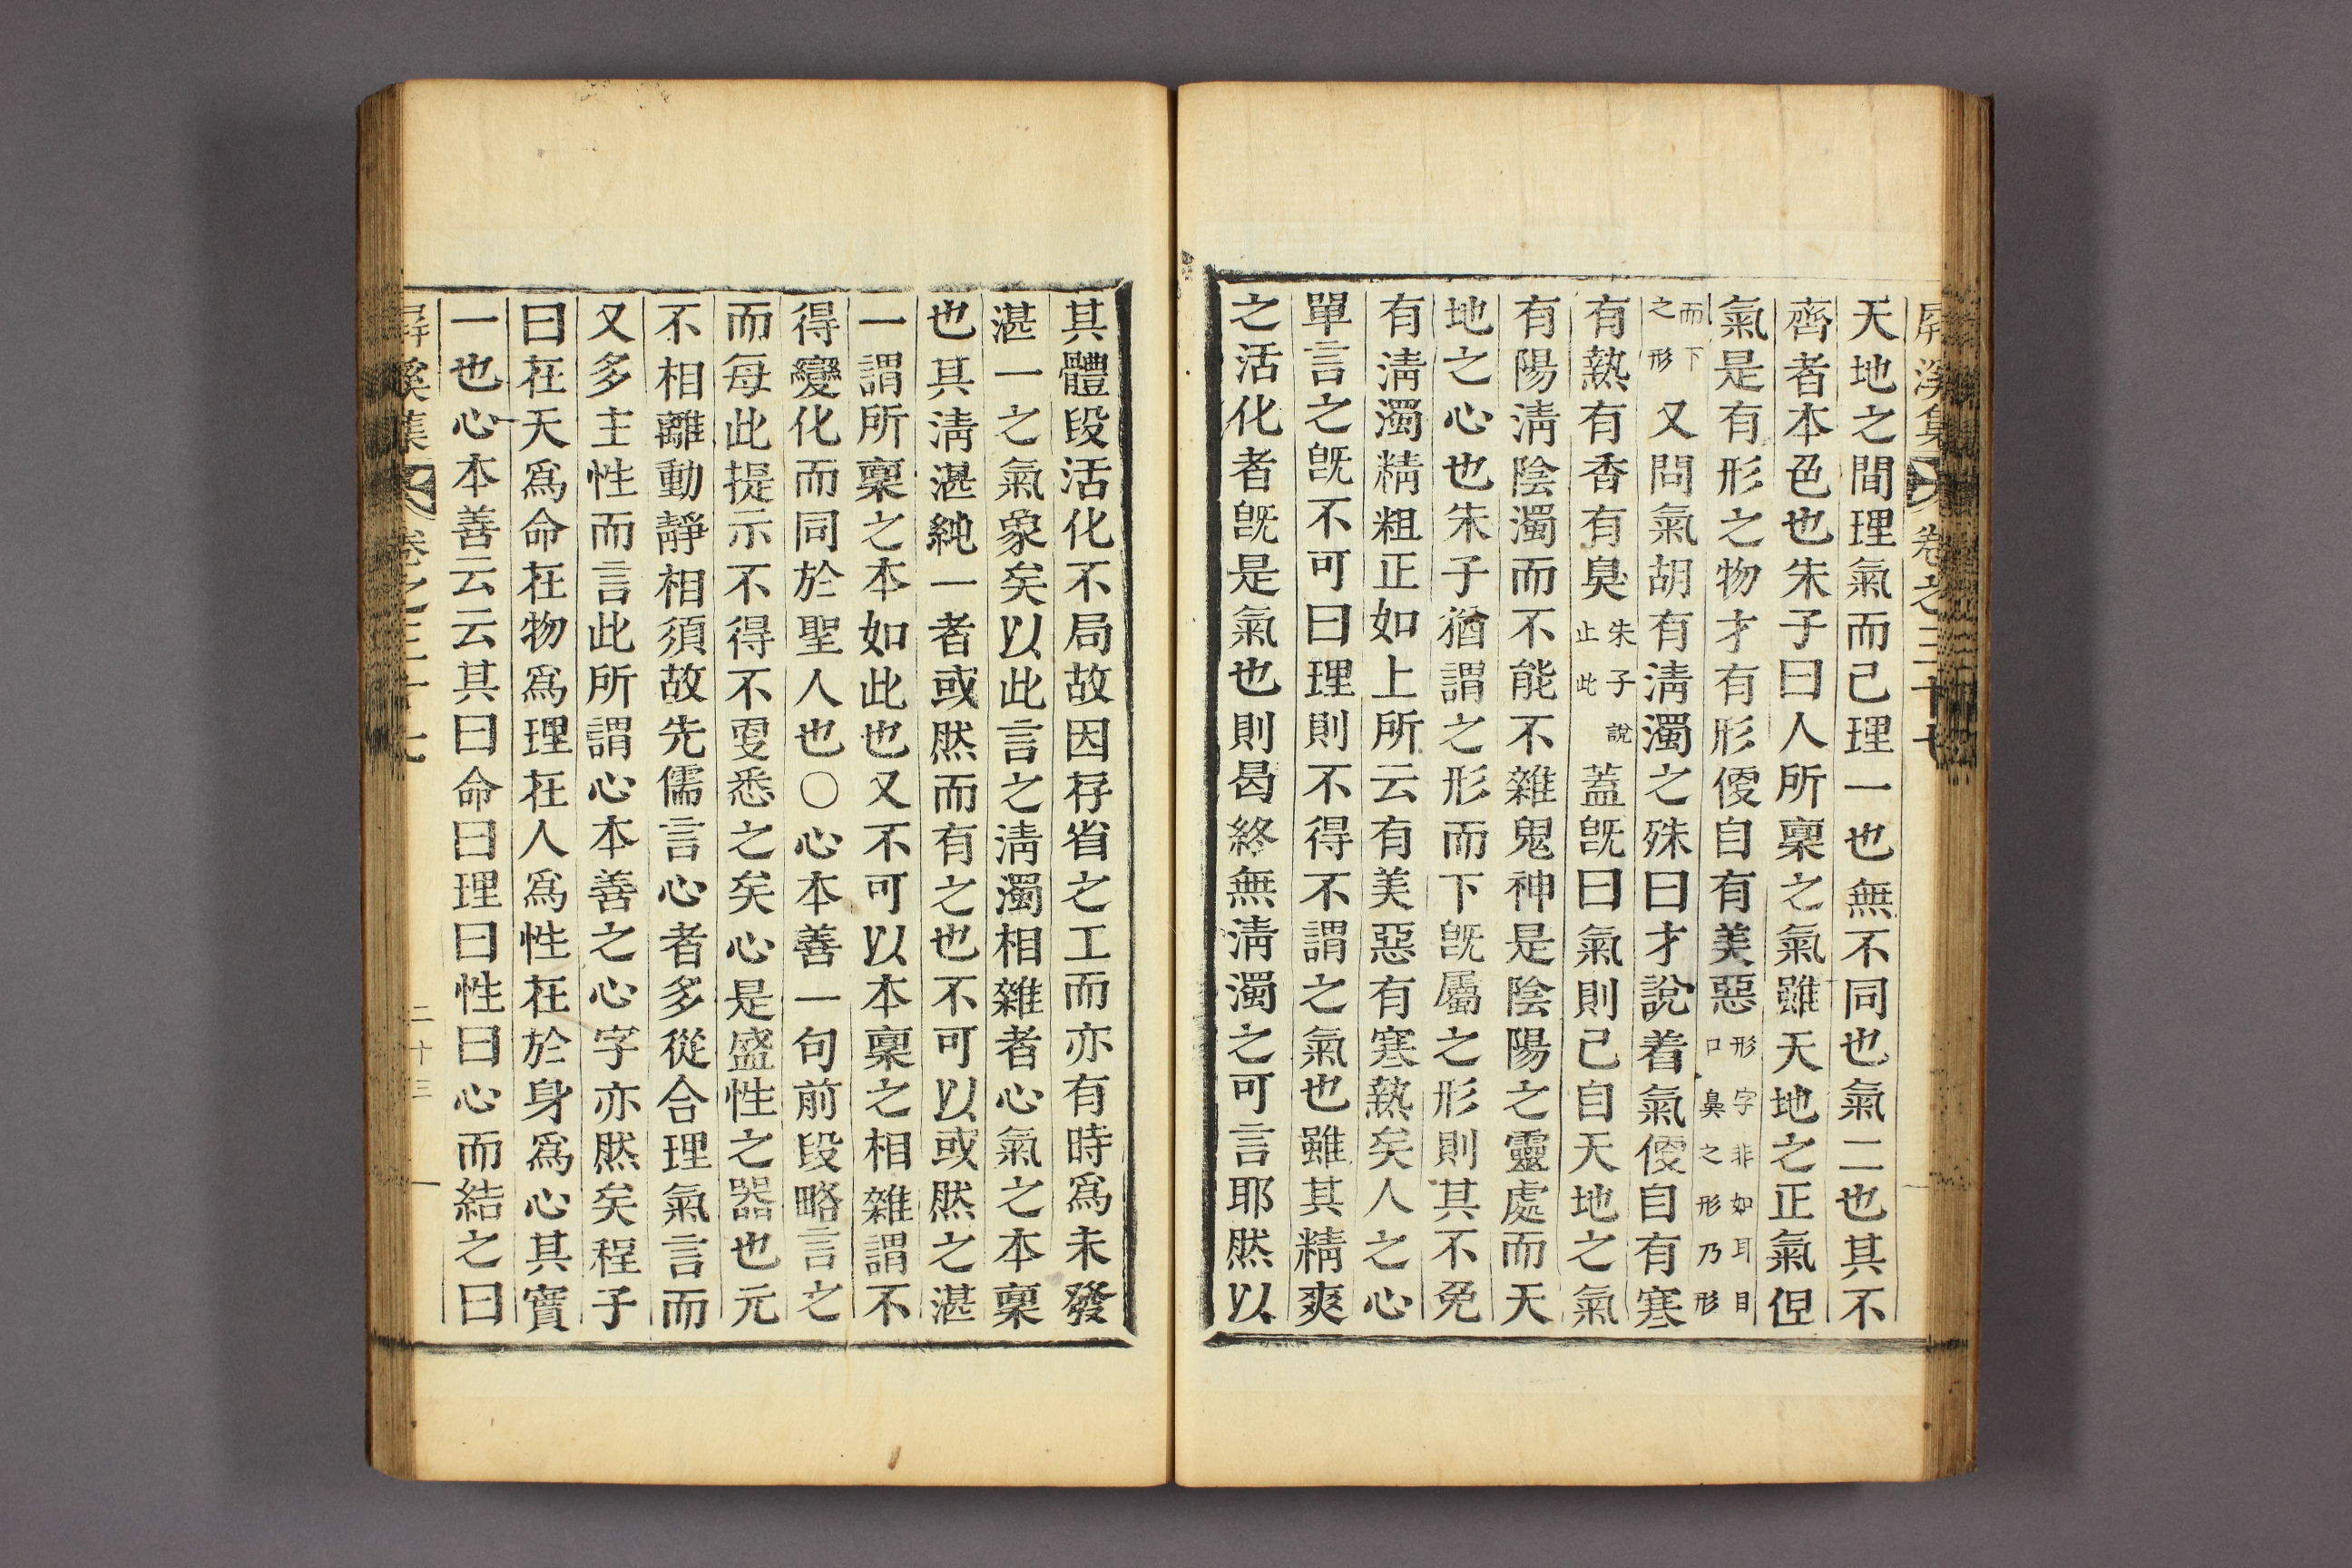 屏溪集 卷之三十七
天地之間理氣而已理一也無不同也氣二也其不
齊者本色也朱子曰人所稟之氣雖天地之正氣但
氣是有形之物才有形便自有美惡形字非如耳目口鼻之形乃形
而下之形又問氣胡有淸濁之殊曰才說着氣便自有寒
有熱有香有臭朱子說止此蓋旣曰氣則已自天地之氣
有陽淸陰濁而不能不雜鬼神是陰陽之靈處而天
地之心也朱子猶謂之形而下旣屬之形則其不免
有淸濁精粗正如上所云有美惡有寒熱矣人之心
單言之旣不可曰理則不得不謂之氣也雖其精爽
之活化者旣是氣也則曷終無淸濁之可言耶然以
其體段活化不局故因存省之工而亦有時爲未發
湛一之氣象矣以此言之淸濁相雜者心氣之本稟
也其淸湛純一者或然而有之也不可以或然之湛
一謂所稟之本如此也又不可以本稟之相雜謂不
得變化而同於聖人也○心本善一句前段略言之
而每此提示不得不更悉之矣心是盛性之器也元
不相離動靜相須故先儒言心者多從合理氣言而
又多主性而言此所謂心本善之心字亦然矣程子
曰在天爲命在物爲理在人爲性在於身爲心其實
一也心本善云云其曰命曰理曰性曰心而結之曰
屏溪集 卷之三十七 二十三